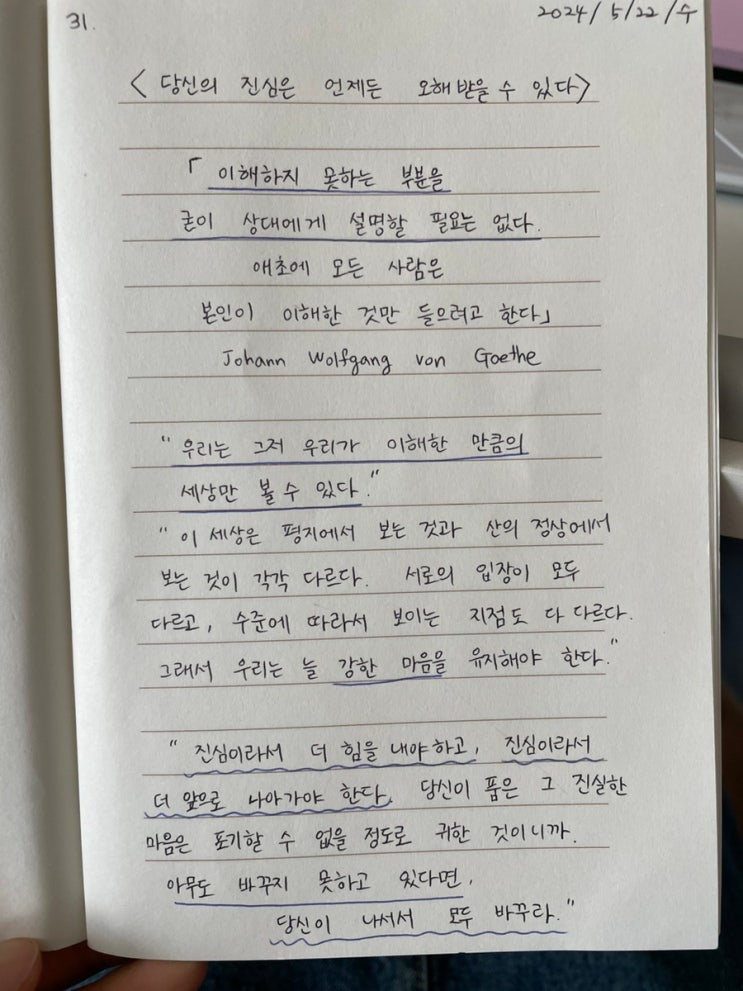 31.
2024/5/22/수
< 당신의 진심은 언제든 오해 받을 수 있다>
「이해하지 못하는 부분을
굳이 상대에게 설명할 필요는 없다.
애초에 모든 사람은
본인이 이해한 것만 들으려고 한다」
Johann Wolfgang von Goethe
"우리는 그저 우리가 이해한 만큼의
세상만 볼 수 있다."
"이 세상은 평지에서 보는 것과 산의 정상에서
보는 것이 각각 다르다. 서로의 입장이 모두
다르고, 수준에 따라서 보이는 지점도 다 다르다.
그래서 우리는 늘 강한 마음을 유지해야 한다."
"진심이라서 더 힘을 내야하고, 진심이라서
더 앞으로 나아가야 한다. 당신이 품은 그 진실한
마음은 포기할 수 없을 정도로 귀한 것이니까.
아무도 바꾸지 못하고 있다면,
당신이 나서서 모두 바꾸라."